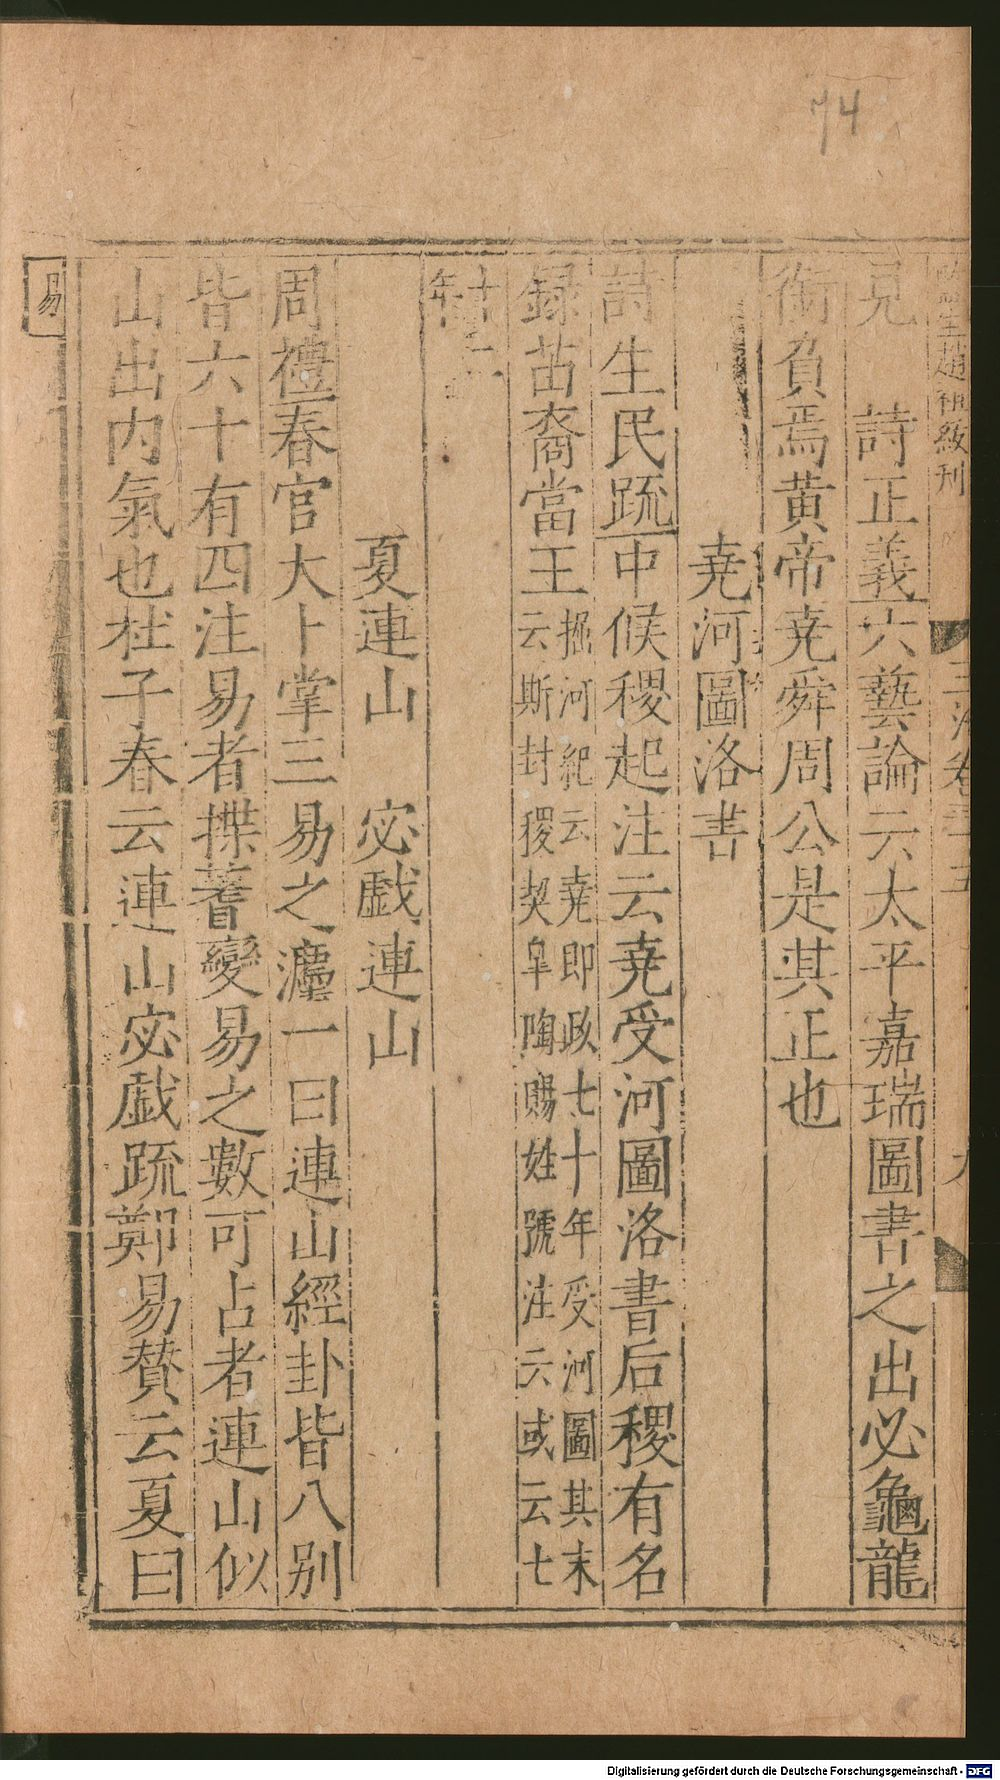 74
監生趙祖綬刊
玉海卷三十五
九
見　詩正義六藝論云太平嘉瑞圖書之出必龜龍
銜負焉黃帝堯舜周公是其正也
堯河圖洛書
詩生民䟽中候稷起注云堯受河圖洛書后稷有名
録苗裔當王
握河紀云堯即政七十年受河圖其末
云斯封稷契皐陶賜姓號注云或云七
十二
年
夏連山　宓戲連山
周禮春官大卜掌三易之灋一曰連山經卦皆八別
皆六十有四注易者揲蓍變易之數可占者連山似
山出内氣也杜子春云連山宓戲䟽鄭易賛云夏曰
易
Digitalisierung gefördert durch die Deutsche Forschungsgemeinschaft - DFG